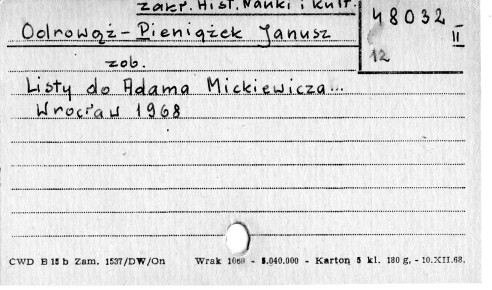 Zakł. Hist. Nauki i Kult.
48032
II
12
Odrowąż-Pieniążek Janusz
zob.
Listy do Adama Mickiewicza...
Wrocław 1968
CWD B 15 b Zam. 1537/DW/On Wrak - 5.040.000 - Karton 5 kl. 180 g. - 10.XII.68.